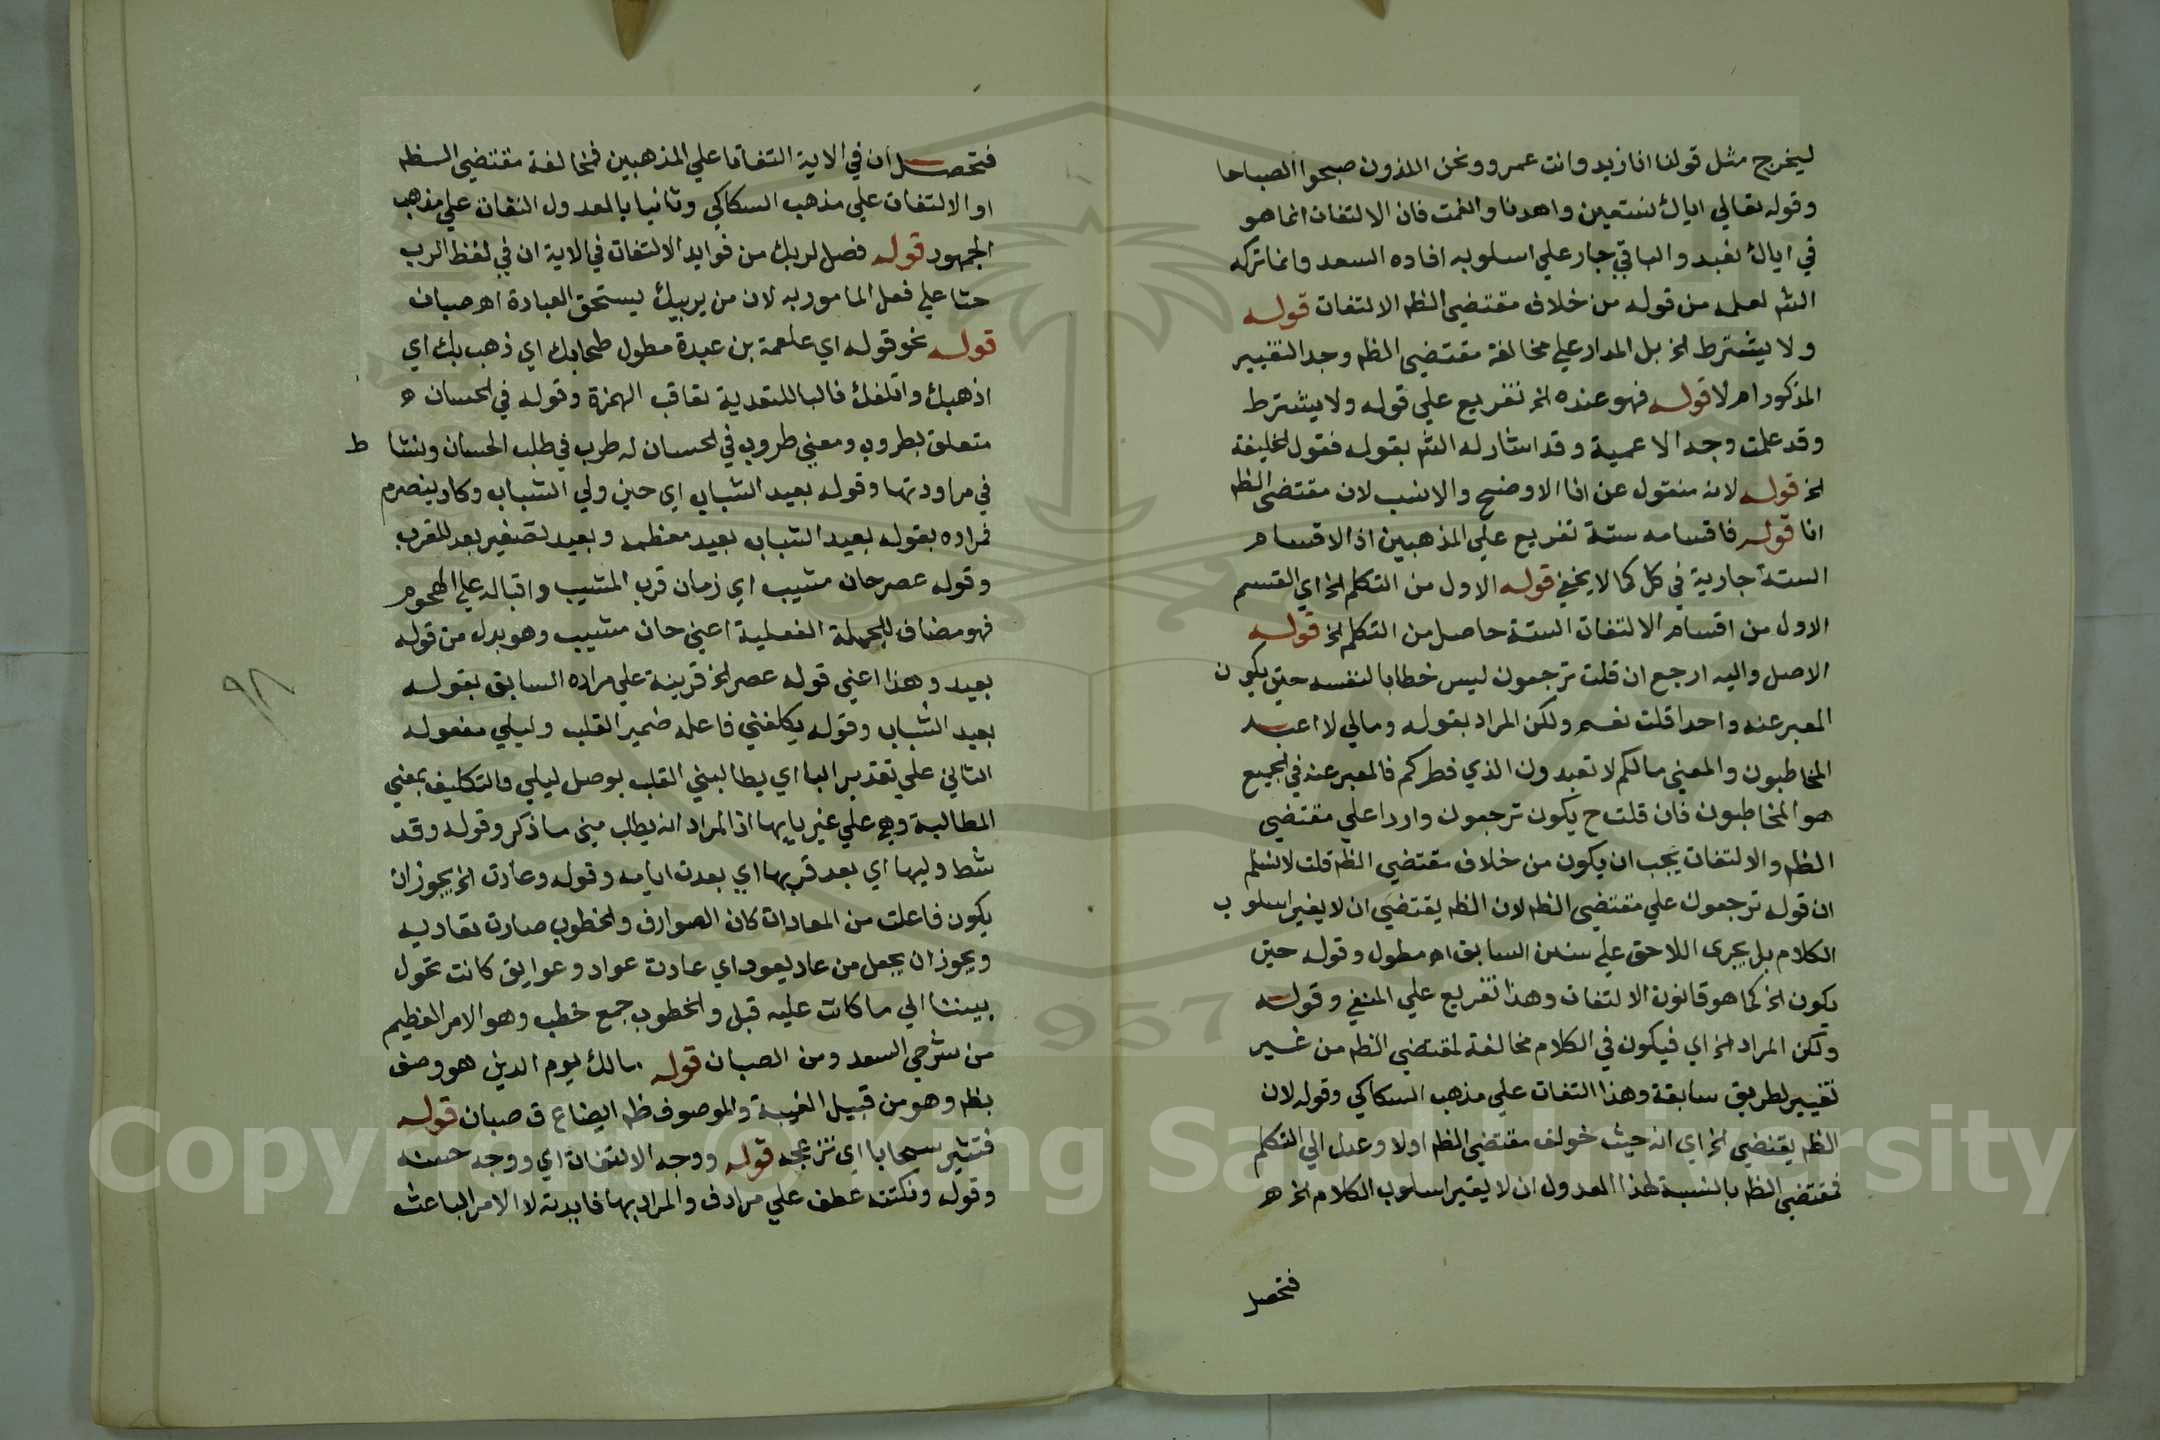 ليخرج مثل قولنا انا زيد وانت عمرو ونحن اللذون صبحوا الصباحا
وقوله تعالي اياك نستعين واهدنا وانعمت فان الالتفات انما هو
في اياك نعبد والباقي جار علي اسلوبه افاده السعد وانما تركه
الشم لعلمه من قوله من خلاف مقتضي الظم الالتفات قوله
ولا يشترط الخ بل المدار علي مخالفة مقتضي الظم وجد التغيير
المذكور ام لا قوله فهو عنده الخ تفريع علي قوله ولا يشترط
وقد علمت وجه الاعمية وقد اشار له الشم بقوله فقول الخليفة
الخ قوله لانه منقول عن انا الاوضح والانسب لان مقتضي الظم
انا قوله فاقسامه ستة تفريع علي المذهبين اذ الاقسام
الستة جارية في كل كما لا يخفي قوله الاول من التكلم الخ اي القسم
الاول من اقسام الالتفات الستة حاصل من التكلم الخ قوله
الاصل واليه ارجع ان قلت ترجعون ليس خطابا لنفسه حتي يكون
المعبر عنه واحدا قلت نعم ولكن المراد بقوله ومالي لا اعبد
المخاطبون والمعني مالكم لا تعبدون الذي فطركم فالمعبر عنه في الجميع
هو المخاطبون فان قلت ح يكون ترجعون واردا علي مقتضي
الظم والالتفات يجب ان يكون من خلاف مقتضي الظم قلت لا نسلم
ان قوله ترجعون علي مقتضي الظم لان الظم يقتضي ان لا يغير اسلوب
الكلام بل يجري اللاحق علي سنن السابق اه مطول وقوله حتي
يكون الخ كما هو قانون الالتفات وهذا تفريع علي المنفي وقوله
ولكن المراد الخ اي فيكون في الكلام مخالفة لمقتضي الظم من غير
تغيير لطريق سابقة وهذا التفات علي مذهب السكاكي وقوله لان
الظم يقتضي الخ اي انه حيث خولف مقتضي الظم اولا وعدل الي التكلم
فمقتضي الظم بالنسبة لهذا العدول ان لا يغير اسلوب الكلام الخ ه
فتحصل
فتحصل ان في الاية التفاتا علي المذهبين فمخالفة مقتضي الظم
او الالتفات علي مذهب السكاكي وثانيا بالعدول التفات علي مذهب
الجمهور قوله فصل لربك من فوايد الالتفات في الاية ان في لفظ الرب
حثا علي فعل المامور به لان من يربيك يستحق العبادة اه صبان
قوله نحو قوله اي علقمة بن عبدة مطول طحابك اي ذهب بك اي
اذهبك واتلفك فالبا للتعدية تعاقب الهمزة وقوله في الحسان ه
متعلق بطروب ومعني طروب في الحسان له طرب في طلب الحسان ونشاط
في مراودتها وقوله بعيد الشباب اي حين ولي الشباب وكاد ينصرم
فمراده بقوله بعيد الشباب بعيد معظمه وبعيد تصغير بعد للقرب
وقوله عصر حان مشيب اي زمان قرب المشيب واقباله علي الهجوم
فهو مضاف للجملة الفعلية اعني حان مشيب وهو بدل من قوله
بعيد وهذا اعني قوله عصر الخ قرينة علي مراده السابق بقوله
بعيد الشباب وقوله يكلفني فاعله ضمير القلب وليلي مفعوله
الثاني علي تقدير البا اي يطالبني القلب بوصل ليلي والتكليف بمعني
المطالبة وهي علي غير بابها اذ المراد انه يطلب مني ما ذكر وقوله وقد
شط وليها اي بعد قربها اي بعدت ايامه وقوله وعادت الخ يجوز ان
يكون فاعلت من المعاداة كان الصوارف والخطوب صارت تعاديه
ويجوز ان يجعل من عاد يعود اي عادت عواد وعوايق كانت تحول
بيننا الي ما كانت عليه قبل والخطوب جمع خطب وهو الامر العظيم
من شرحي السعد ومن الصبان قوله مالك يوم الدين هو وصف
بظم وهو من قبيل الغيبة والموصوف ظم ايضا ع ق صبان قوله
فتثير سحابا اي تزعجه قوله ووجه الالتفات اي ووجه حسنه
وقوله ونكتته عطف علي مرادف والمراد بها فايدته لا الامر الباعث
٩٨
1957
Copyright © King Saud University